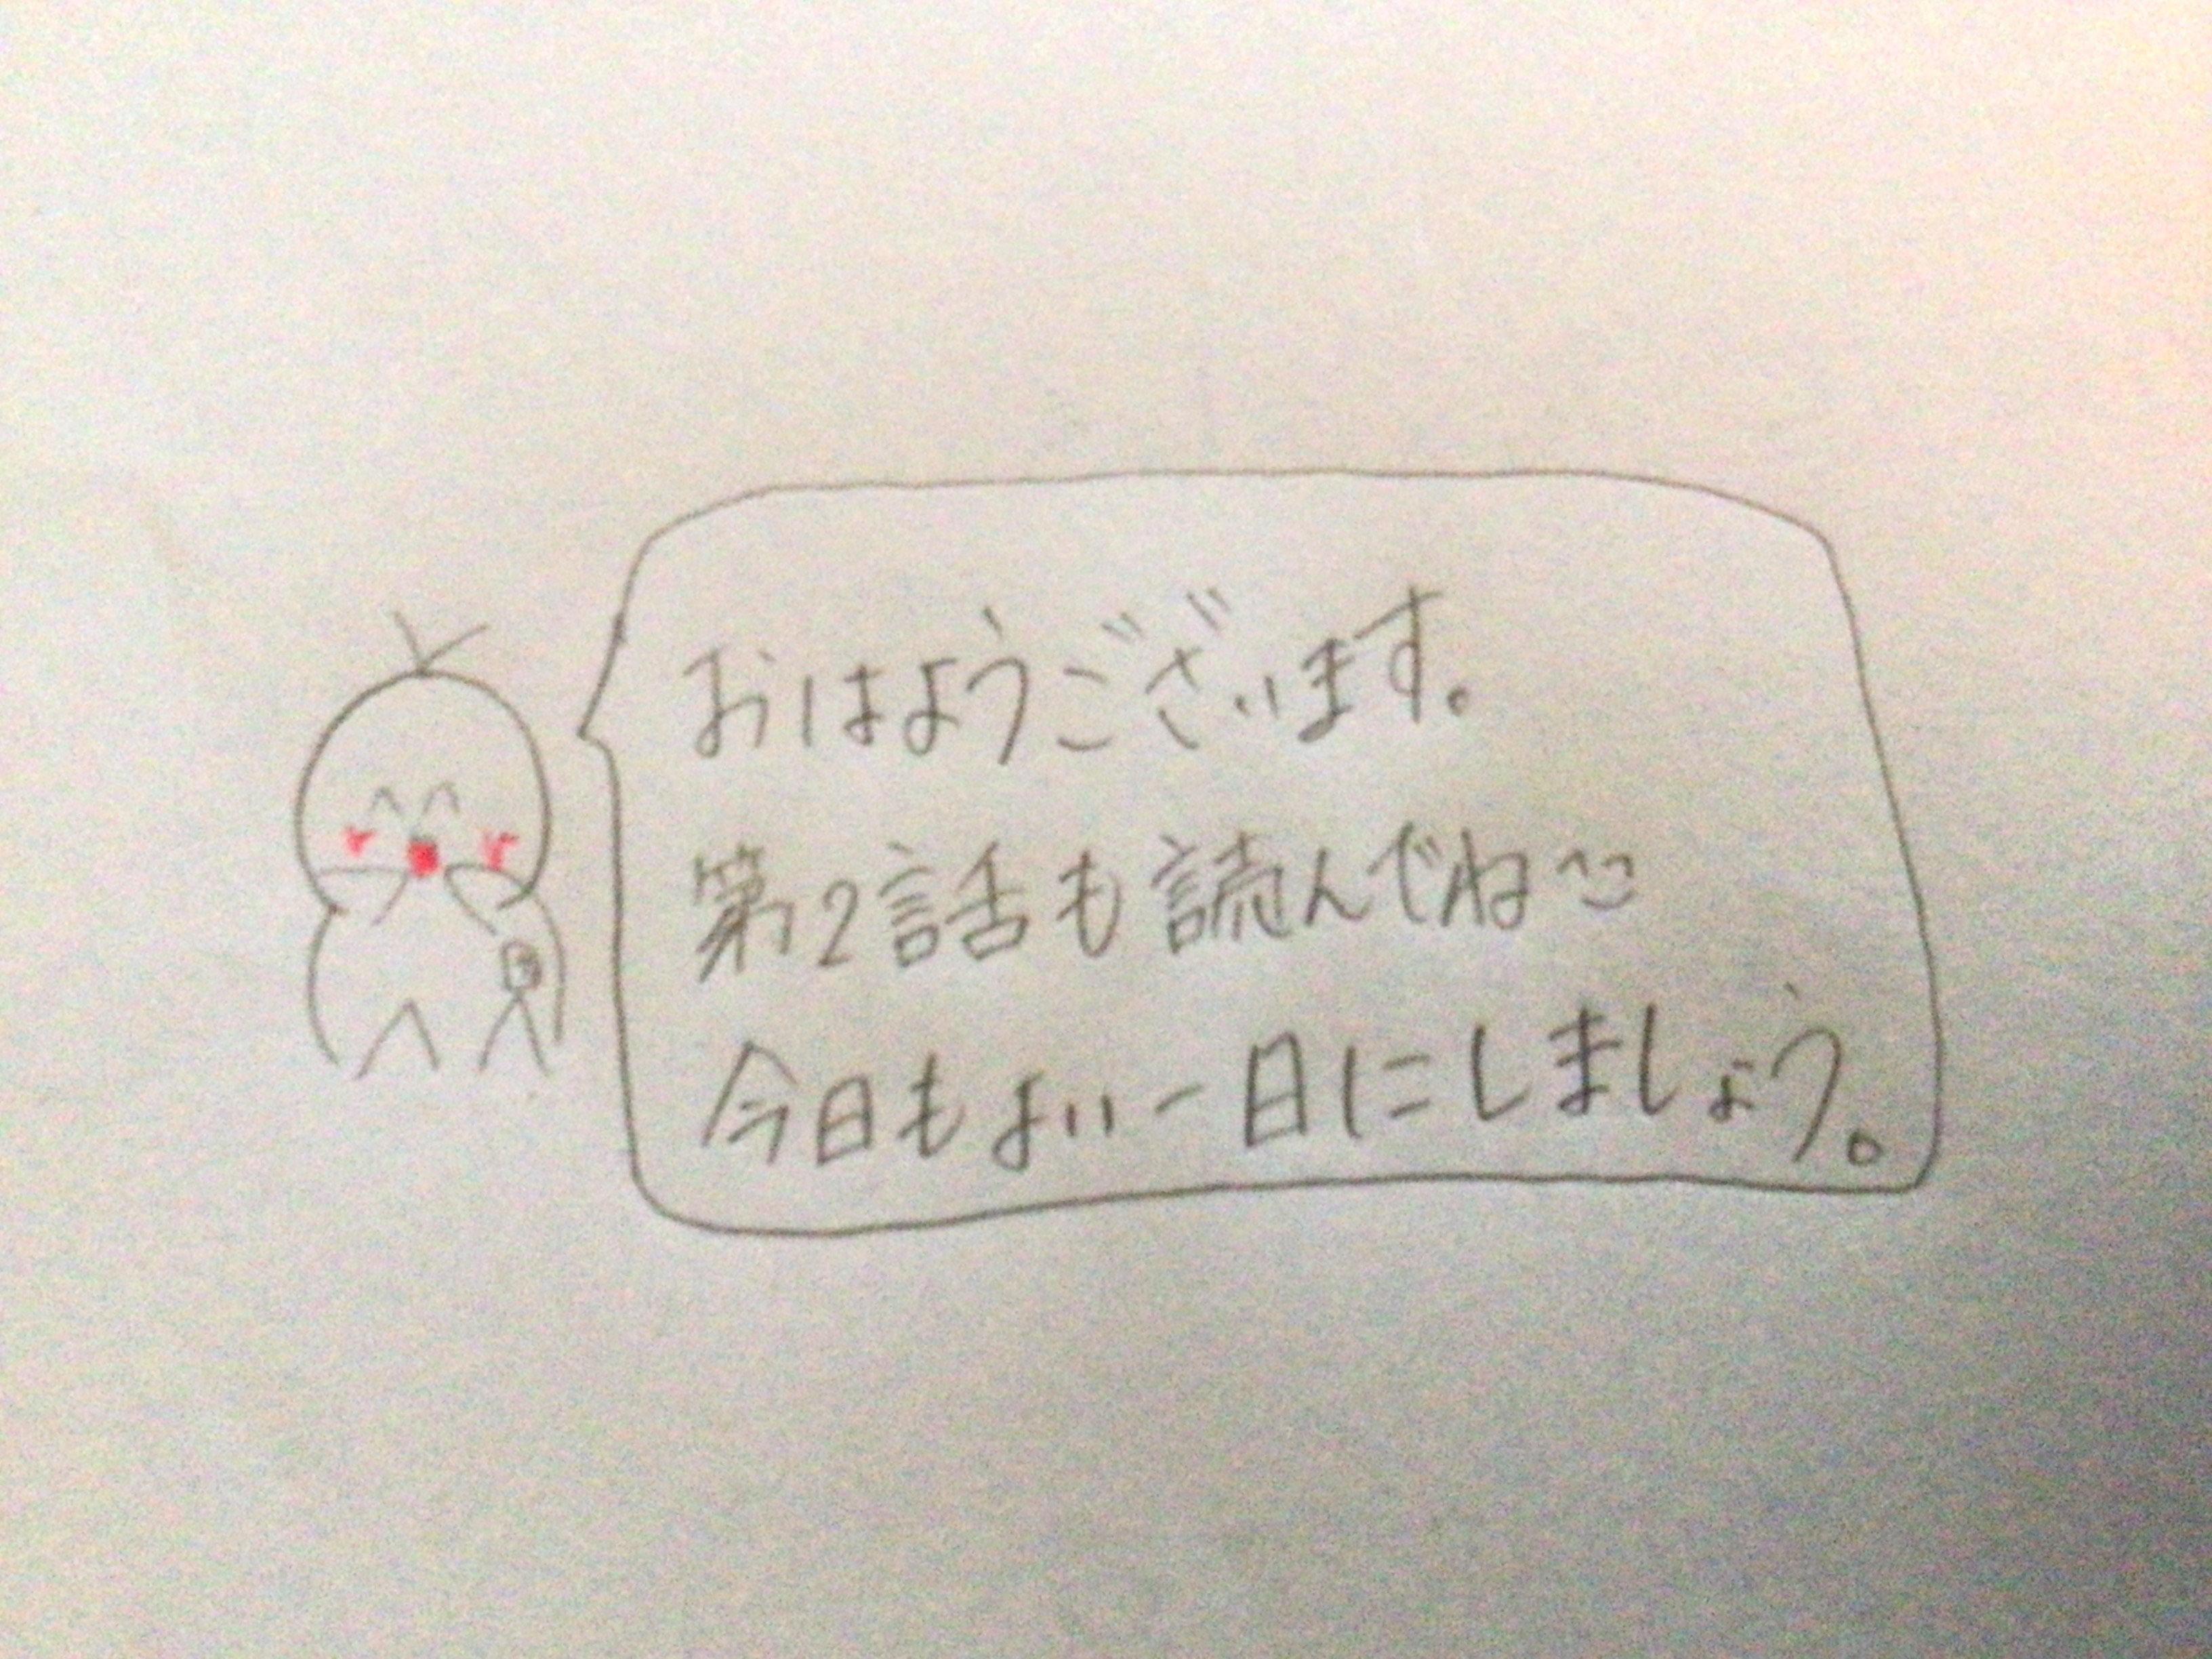 おはようございます。
第2話も読んでね^^
今日もよい一日にしましょう。